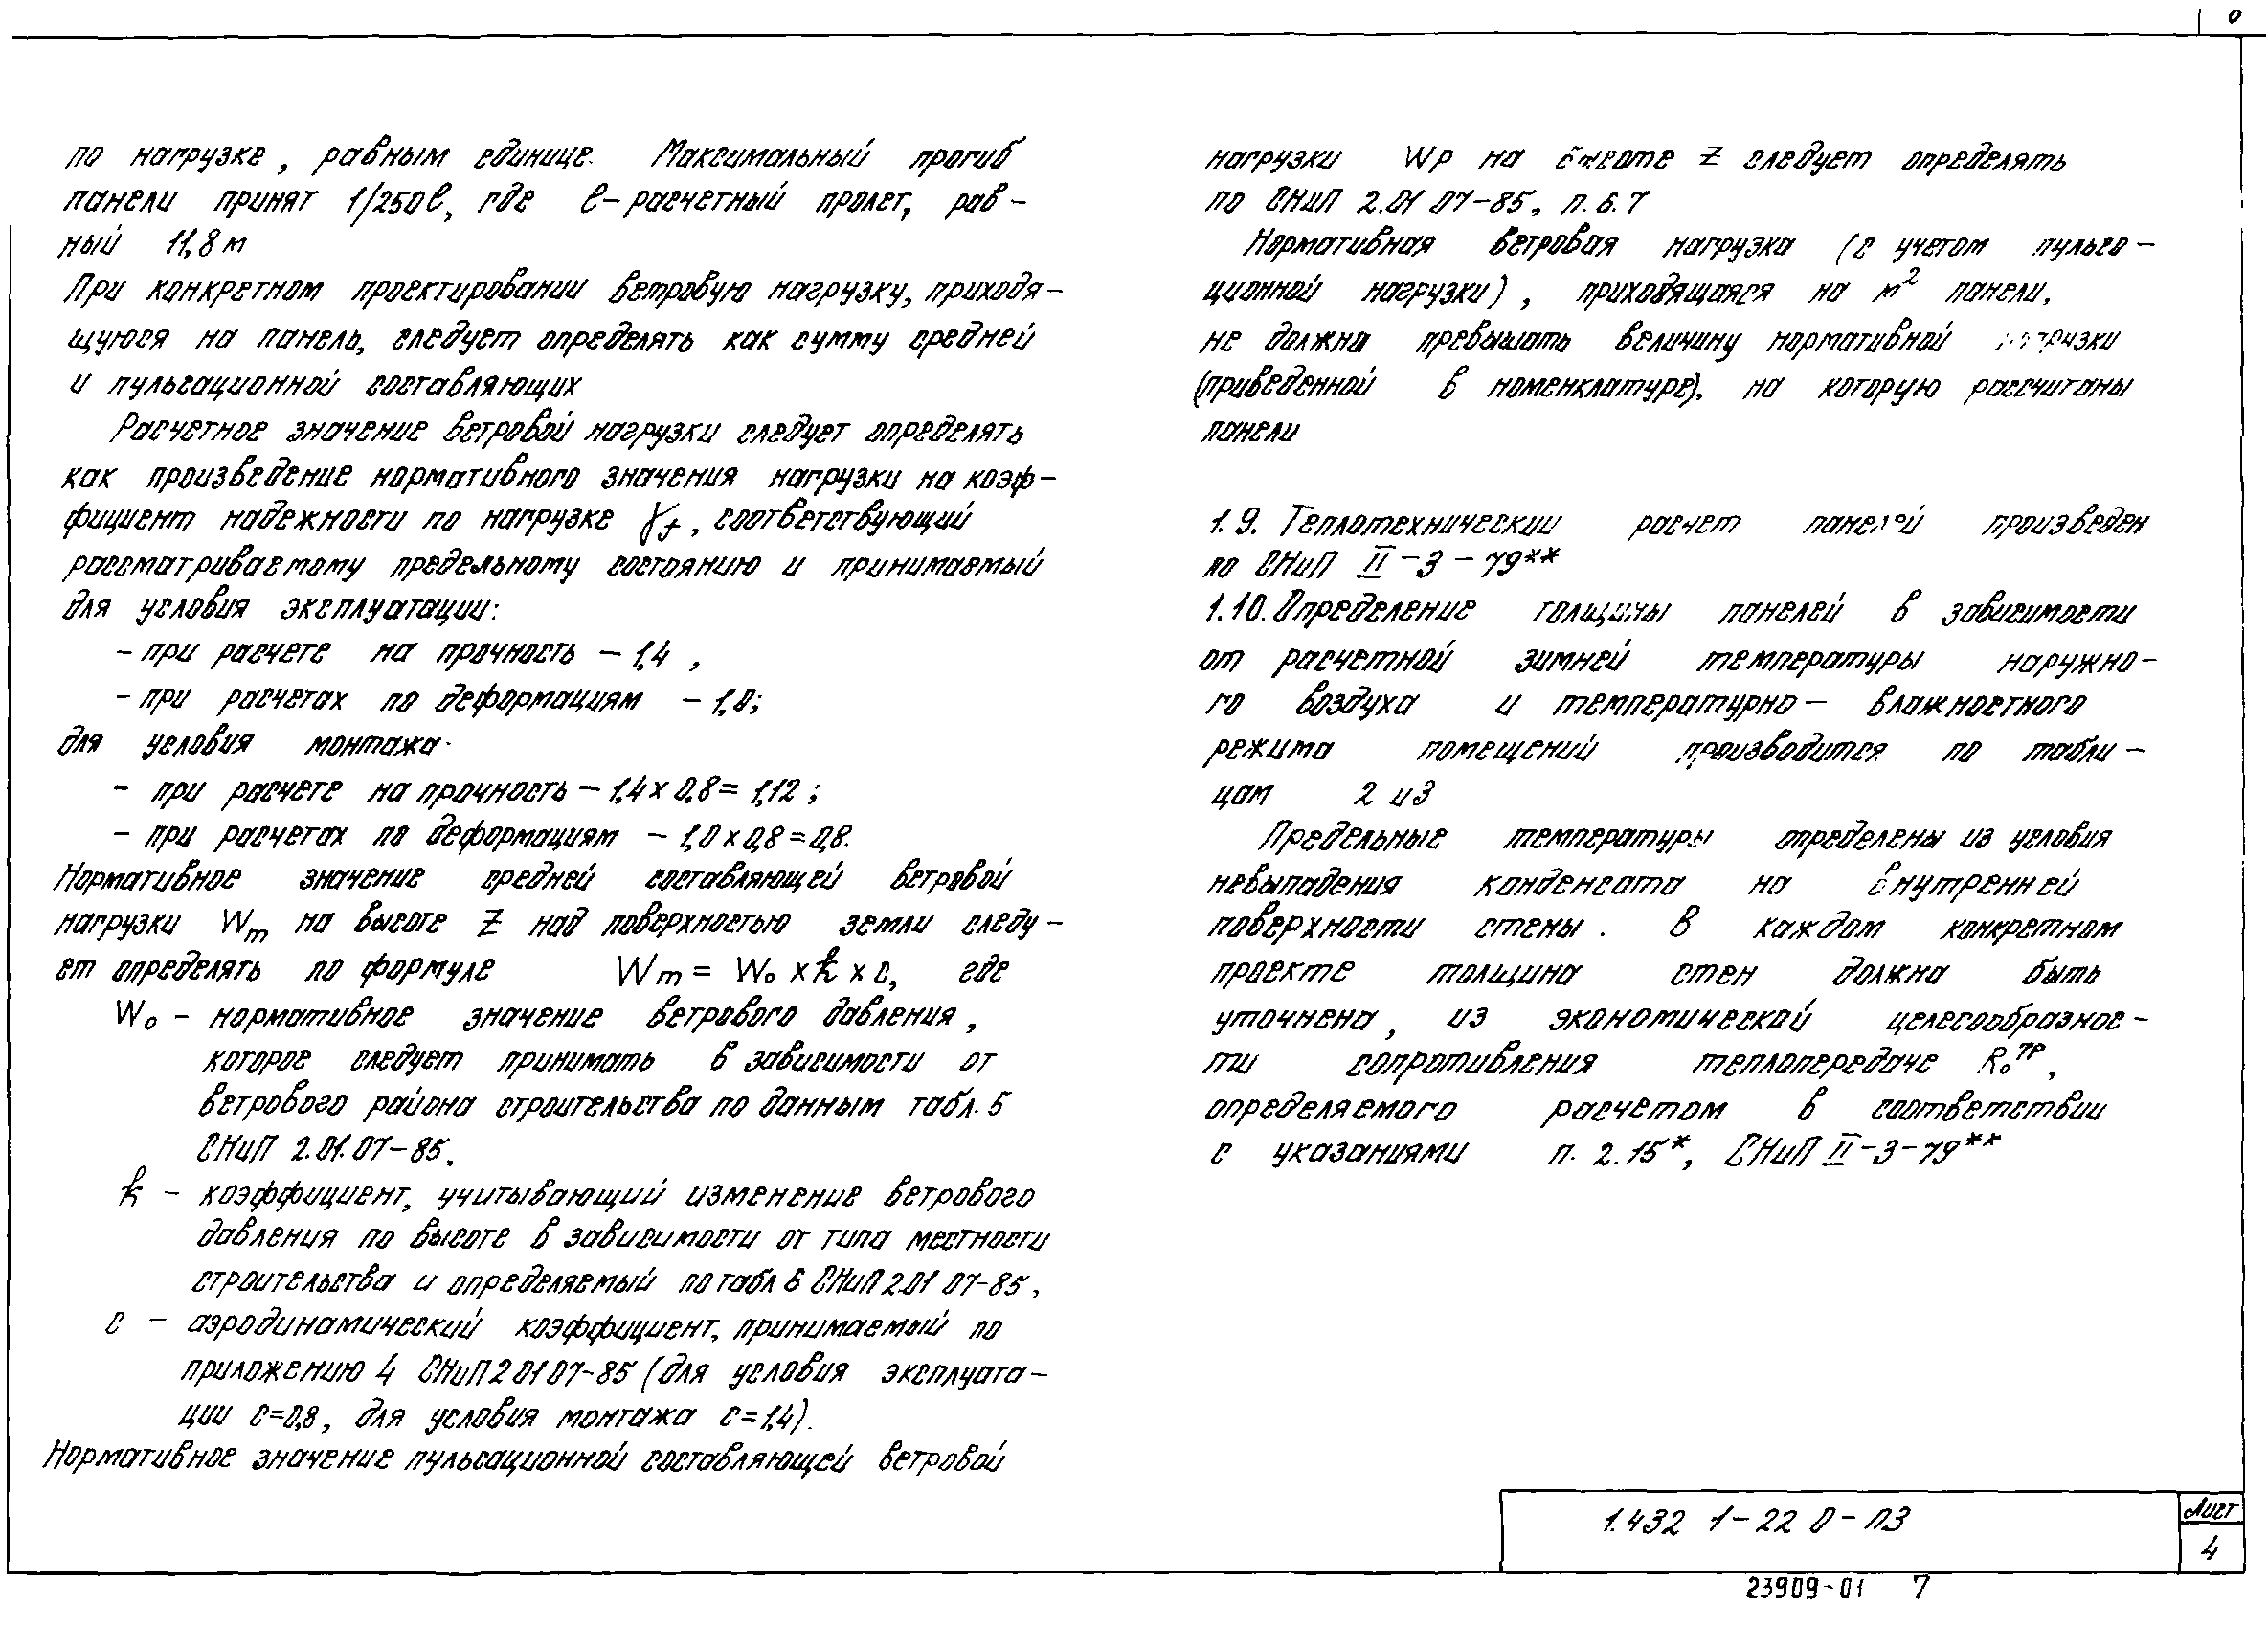 по нагрузке, равным единице. Максимальный прогиб
панели принят 1/250ℓ, где ℓ-расчетный пролет, рав-
ный 11,8 м
При конкретном проектировании ветровую нагрузку, приходя-
щуюся на панель, следует определять как сумму средней
и пульсационной составляющих
Расчетное значение ветровой нагрузки следует определять
как произведение нормативного значения нагрузки на коэф-
фициент надежности по нагрузке γf, соответствующий
рассматриваемому предельному состоянию и принимаемый
для условия эксплуатации:
- при расчете на прочность - 1,4 ,
- при расчетах по деформациям - 1,0;
для условия монтажа.
- при расчете на прочность - 1,4 х 0,8 = 1,12 ;
- при расчетах по деформациям - 1,0 х 0,8 = 0,8.
Нормативное значение средней составляющей ветровой
нагрузки Wm на высоте Z над поверхностью земли следу-
ет определять по формуле Wm = W₀ x k x c, где
W₀ - нормативное значение ветрового давления,
которое следует принимать в зависимости от
ветрового района строительства по данным табл. 5
СНиП 2.01.07-85.
k - коэффициент, учитывающий изменение ветрового
давления по высоте в зависимости от типа местности
строительства и определяемый по табл 6 СНиП 2.01 07-85.
c - аэродинамический коэффициент, принимаемый по
приложению 4 СНиП 2 01 07-85 (для условия эксплуата-
ции с=0,8, для условия монтажа с=1,4).
Нормативное значение пульсационной составляющей ветровой
нагрузки Wp на высоте Z следует определять
по СНиП 2.01 07-85, п. 6.7
Нормативная ветровая нагрузка (с учетом пульса-
ционной нагрузки), приходящаяся на м² панели,
не должна превышать величину нормативной нагрузки
(приведенной в номенклатуре), на которую рассчитаны
панели
1.9. Теплотехнический расчет панелей произведен
по СНиП II-3-79**
1.10. Определение толщины панелей в зависимости
от расчетной зимней температуры наружно-
го воздуха и температурно- влажностного
режима помещений производится по табли-
цам 2 и 3
Предельные температуры определены из условия
невыпадения конденсата на внутренней
поверхности стены. В каждом конкретном
проекте толщина стен должна быть
уточнена, из экономической целесообразнос-
ти сопротивления теплопередаче R₀ᵀᴾ,
определяемого расчетом в соответствии
с указаниями п. 2.15*, СНиП II-3-79**
1.432 1-22 0-ПЗ
Лист
4
23909-01 7
0